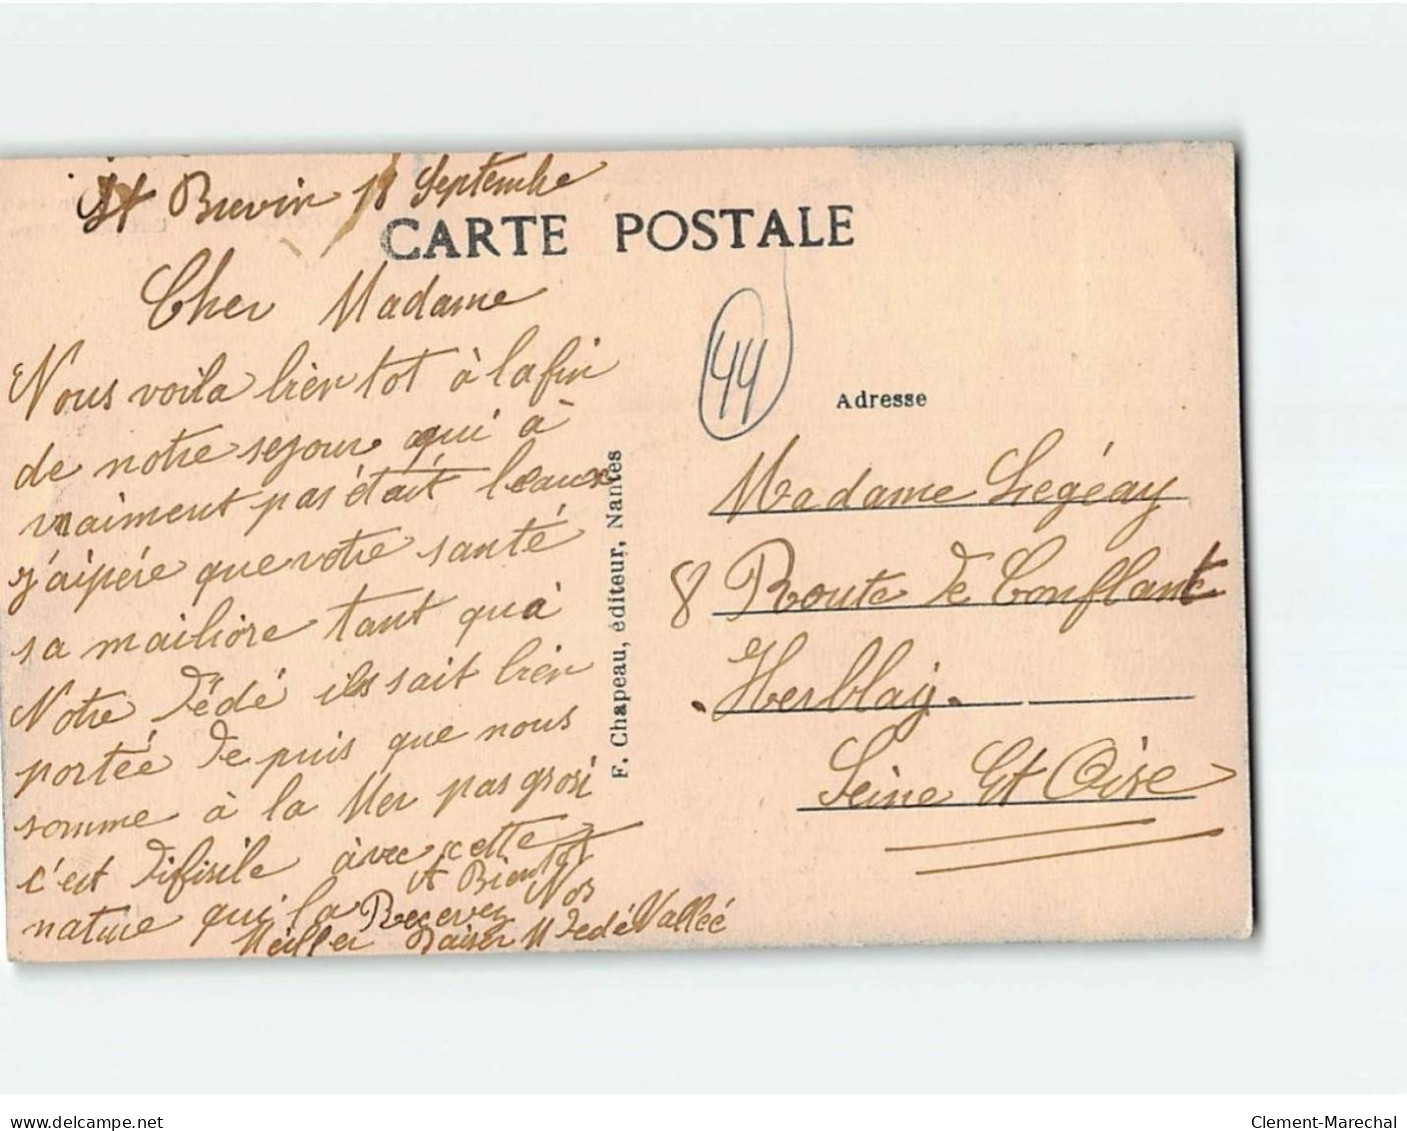 St Brevin 18 Septembre
CARTE POSTALE
Cher Madame
Nous voila bien tot à la fin
de notre sejour qui à
vraiment pas était beaux
j'aipére que votre santé
sa mailiore tant qu'a
Notre Dédé ils sait bien
portée De puis que nous
somme à la Mer pas grosi
c'est Difisile àvec cette
nature qui la
A Bientôt
Recevez Nos
Meiller Baiser M Dedé Vallée
F. Chapeau, éditeur, Nantes
44
Adresse
Madame Legéay
8 Route De Conflant
Herblay.
Seine Et Oise
delcampe.net
Clement-Marechal